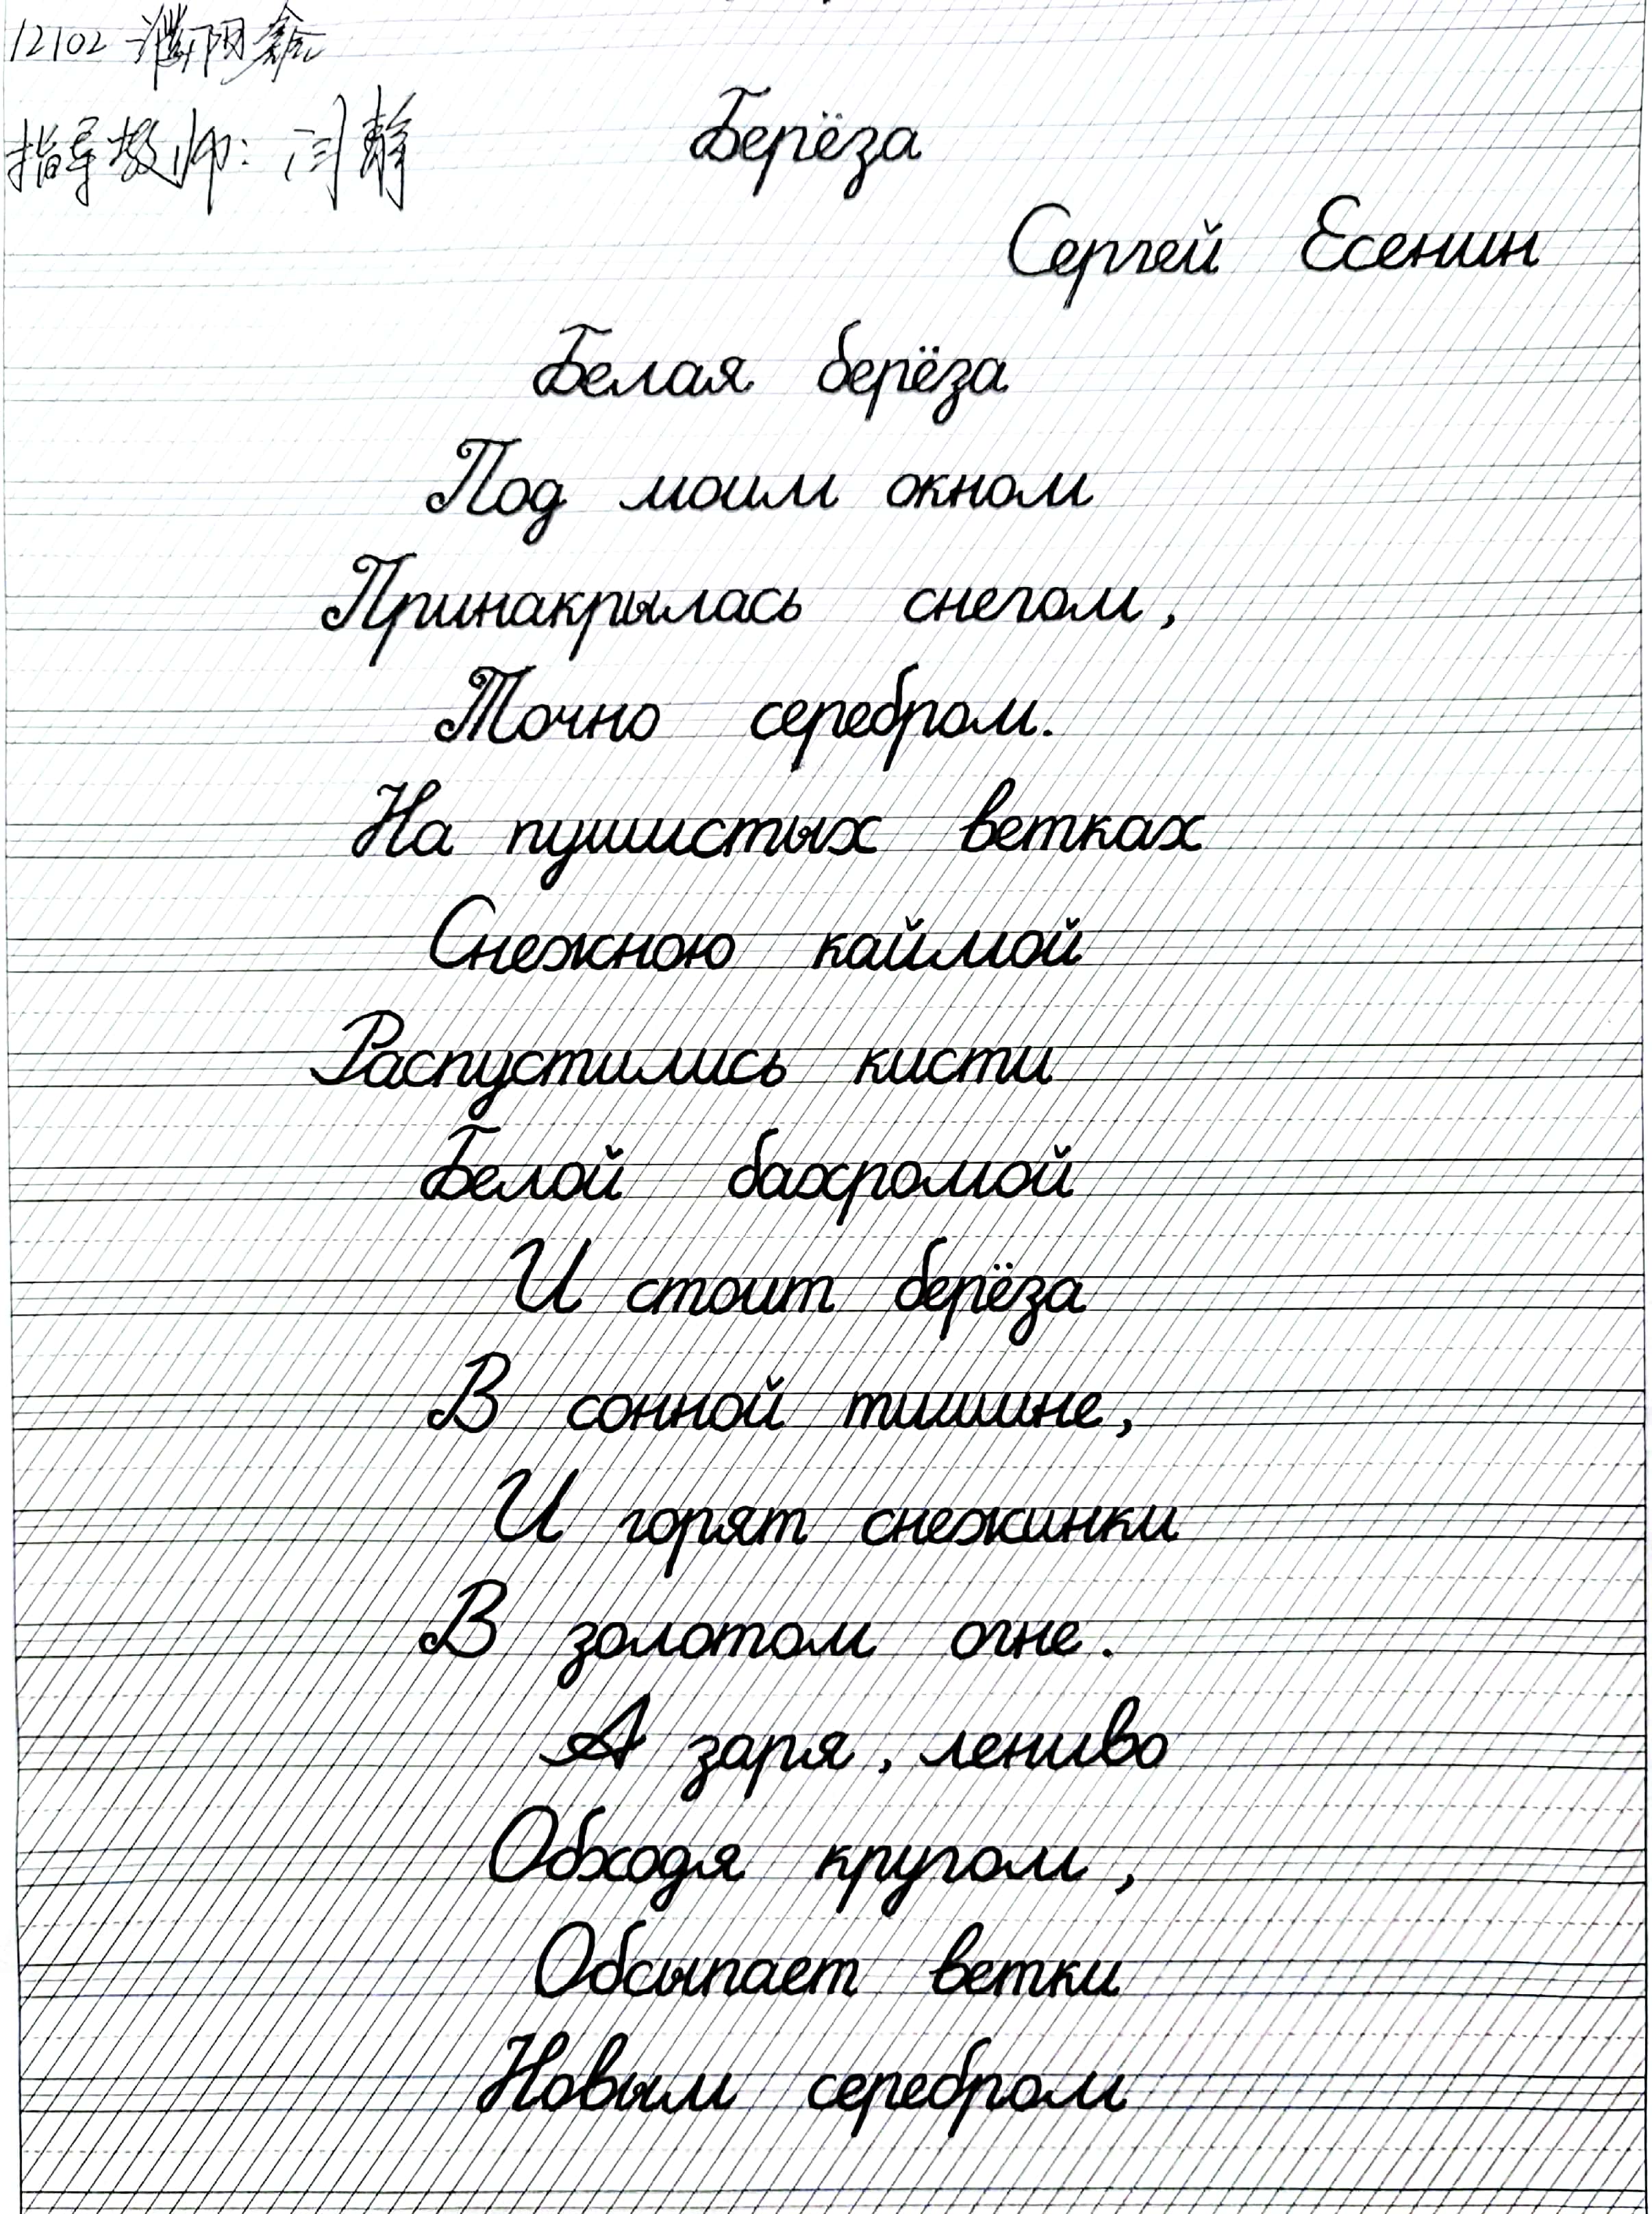 12102 濮阳鑫
指导教师: 闫静
Берёза
Сергей Есенин
Белая берёза
Под моим окном
Принакрылась снегом,
Точно серебром.
На пушистых ветках
Снежною каймой
Распустились кисти
Белой бахромой
И стоит берёза
В сонной тишине,
И горят снежинки
В золотом огне.
А заря, лениво
Обходя кругом,
Обсыпает ветки
Новым серебром